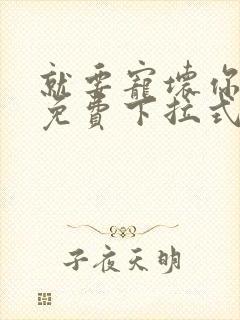 就要寵壞你
免費下拉式
子夜天明